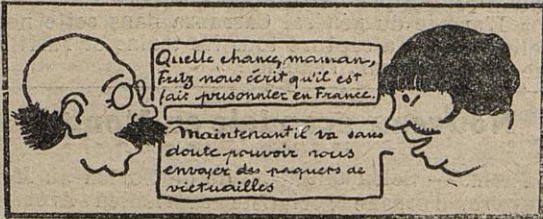 Quelle chance, maman,
Fritz nous écrit qu'il est
fait prisonnier en France.
Maintenant il va sans
doute pouvoir nous
envoyer des paquets de
victuailles